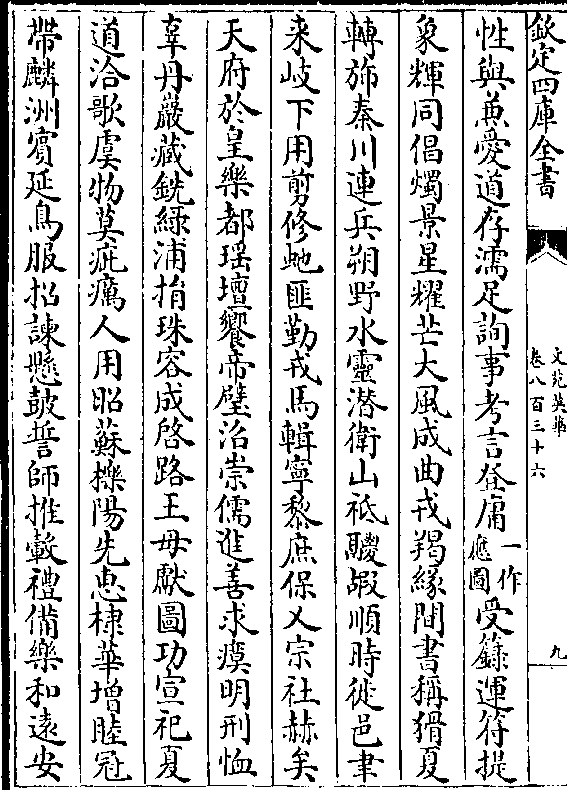 欽定四庫全書
文苑英華
卷八百三十六
九
性與兼愛道存濡足詢事考言登庸一作應圖受籙運符提
象輝同倡燭景星耀芒大風成曲戎羯緣間書稱猾夏
轉旆秦川連兵朔野水靈潛衛山祗騣嘏順時徙邑聿
来岐下用剪修虵匪勤戎馬輯寧黎庶保乂宗社赫矣
天府於皇樂都瑶壇饗帝璧沼崇儒進善求瘼明刑恤
辜丹巖藏銑緑浦捐珠容成啓路王母獻圖功宣祀夏
道洽歌虞物莫疵癘人用昭蘇櫟陽先恵棣華增睦冠
帶麟洲賔延鳥服招諫懸鼓誓師推轂禮備樂和逺安